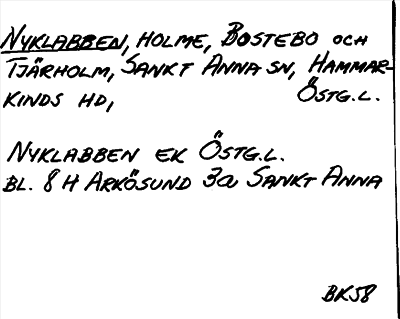 NYKLABBEN, HOLME, BOSTEBO OCH
TJÄRHOLM, SANKT ANNA SN, HAMMAR-
KINDS HD, ÖSTG.L.
NYKLABBEN EK ÖSTG.L.
BL. 8 H ARKÖSUND 3a SANKT ANNA
BK58